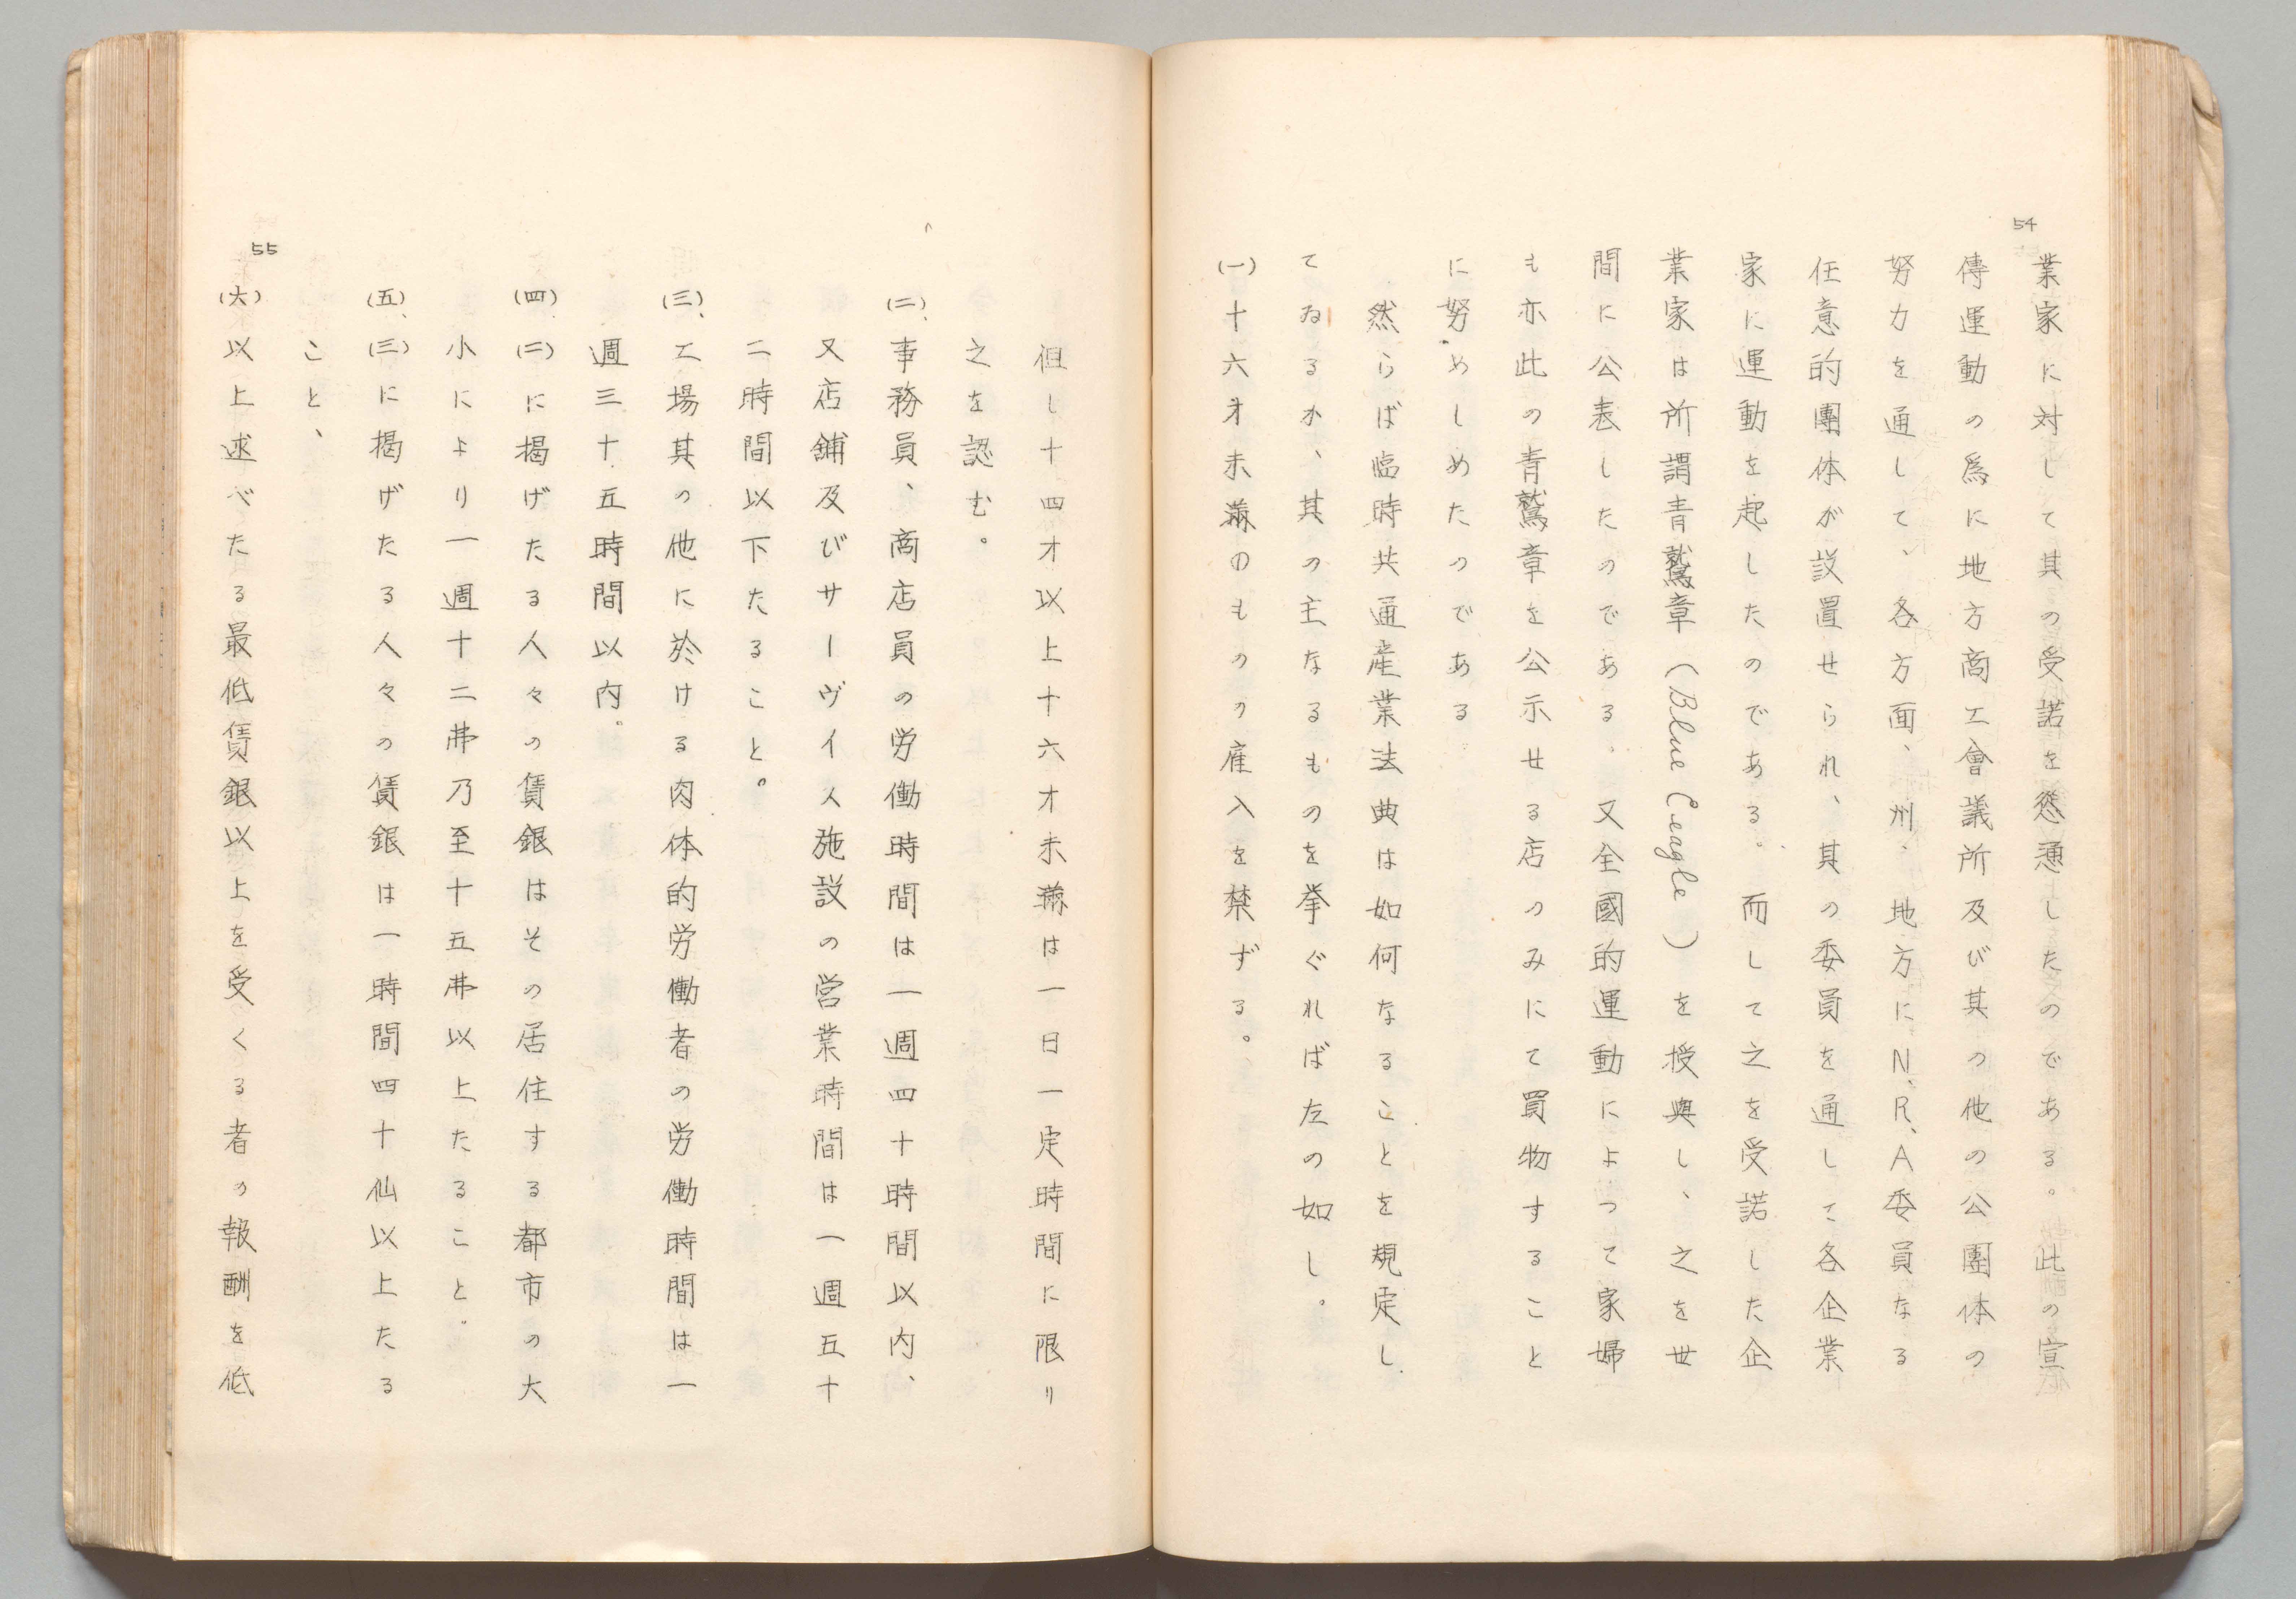 54
業家に対して其の受諾を慫慂したのである。此の宣
傳運動の爲に地方商工會議所及び其の他の公團体の
努力を通して、各方面、州、地方にN、R、A委員なる
任意的團体が設置せられ、其の委員を通して各企業
家に運動を起したのである。而して之を受諾した企
業家は所謂青鷲章（Blue Eeagle）を授與し、之を世
間に公表したのである。又全國的運動によつて家婦
も亦此の青鷲章を公示せる店のみにて買物すること
に努めしめたのである
然らば臨時共通産業法典は如何なることを規定し
てゐるか、其の主なるものを挙ぐれば左の如し。
(一)十六才未満のものの雇入を禁ずる。
但し十四才以上十六才未満は一日一定時間に限り
之を認む。
(二)、事務員、商店員の労働時間は一週四十時間以内、
又店舗及びサーヴイス施設の営業時間は一週五十
二時間以下たること。
(三)、工場其の他に於ける肉体的労働者の労働時間は一
週三十五時間以内。
(四)(二)に掲げたる人々の賃銀はその居住する都市の大
小により一週十二弗乃至十五弗以上たること。
(五)、(三)に掲げたる人々の賃銀は一時間四十仙以上たる
こと、
55
(六)以上述べたる最低賃銀以上を受くる者の報酬を低